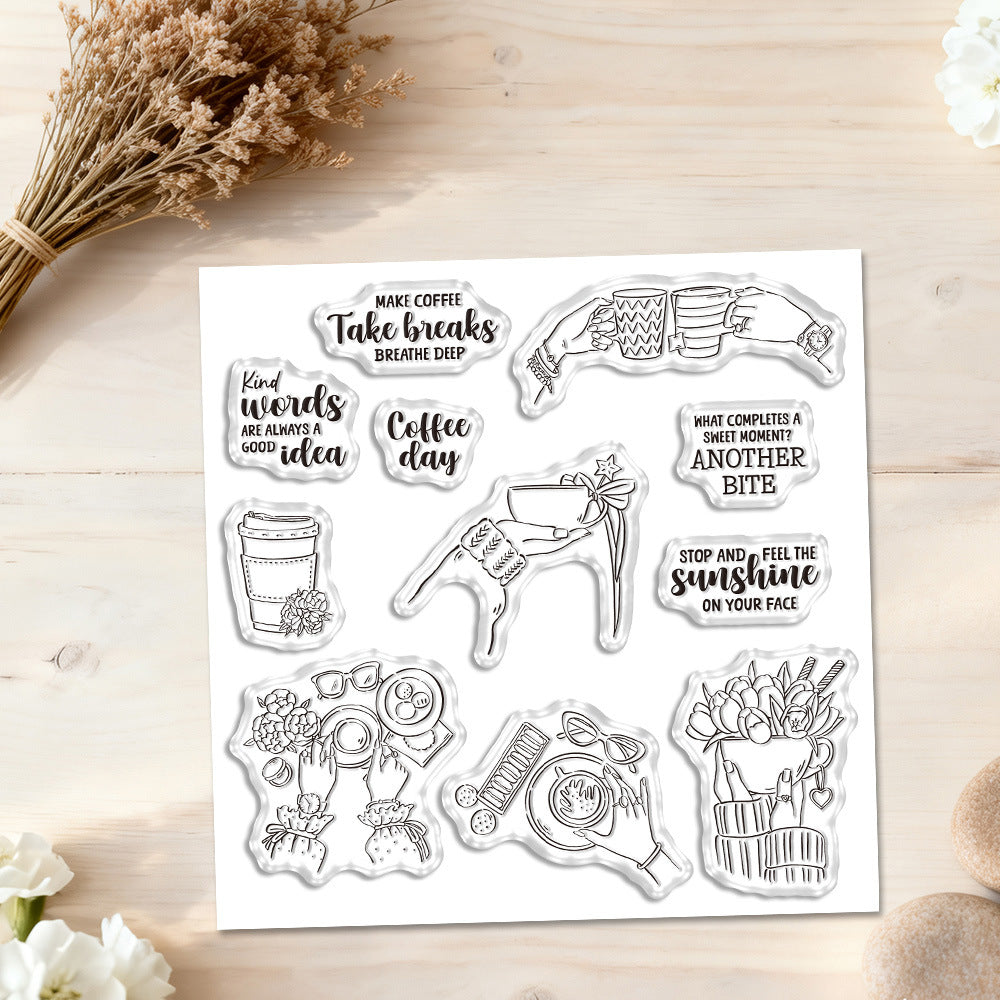 MAKE COFFEE
Take breaks
BREATHE DEEP
Kind
words
ARE ALWAYS A
GOOD idea
Coffee
day
WHAT COMPLETES A
SWEET MOMENT?
ANOTHER
BITE
STOP AND FEEL THE
sunshine
ON YOUR FACE